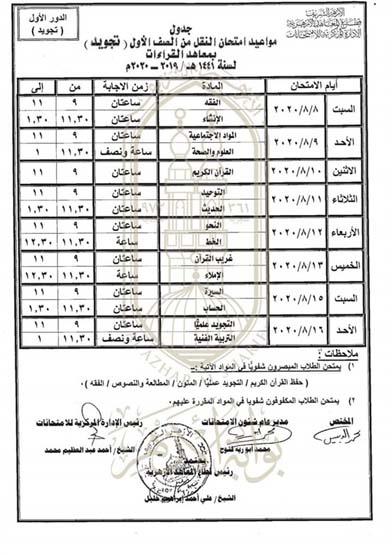 الأزهر الشريف
قطاع المعاهد الأزهرية
الإدارة المركزية للامتحانات
الدور الأول
( تجويد )
جدول
مواعيد امتحان النقل من الصف الأول ( تجويد )
بمعاهد القراءات
لسنة ١٤٤١ هـ / ٢٠١٩ - ٢٠٢٠م
أيام الامتحان المادة زمن الاجابة من إلى
السبت ٢٠٢٠/٨/٨ الفقه ساعتان ٩ ١١
الإنشاء ساعتان ١١,٣٠ ١,٣٠
الأحد ٢٠٢٠/٨/٩ المواد الاجتماعية ساعتان ٩ ١١
العلوم والصحة ساعة ونصف ١١,٣٠ ١
الاثنين ٢٠٢٠/٨/١٠ القرآن الكريم ساعتان ٩ ١١
الثلاثاء ٢٠٢٠/٨/١١ التوحيد ساعتان ٩ ١١
الحديث ساعتان ١١,٣٠ ١,٣٠
الأربعاء ٢٠٢٠/٨/١٢ النحو ساعتان ٩ ١١
الخط ساعة ١١,٣٠ ١٢,٣٠
الخميس ٢٠٢٠/٨/١٣ غريب القرآن ساعتان ٩ ١١
الإملاء ساعة ١١,٣٠ ١٢,٣٠
السبت ٢٠٢٠/٨/١٥ السيرة ساعتان ٩ ١١
الحساب ساعتان ١١,٣٠ ١,٣٠
الأحد ٢٠٢٠/٨/١٦ التجويد علميًا ساعتان ٩ ١١
التربية الفنية ساعة ونصف ١١,٣٠ ١
ملاحظات :
١) يمتحن الطلاب المبصرون شفويًا في المواد الآتية :ـ
( حفظ القرآن الكريم / تجويد عمليًا / المتون / المطالعة والنصوص / الفقه )
٢) يمتحن الطلاب المكفوفون شفويا في المواد المقررة عليهم.
المختص
مدير عام شئون الامتحانات
رئيس الإدارة المركزية للامتحانات
محمد أبوزيد فتوح
الشيخ / أحمد عبد العظيم محمد
يعتمد
رئيس قطاع المعاهد الأزهرية
الشيخ / علي أحمد إبراهيم خليل